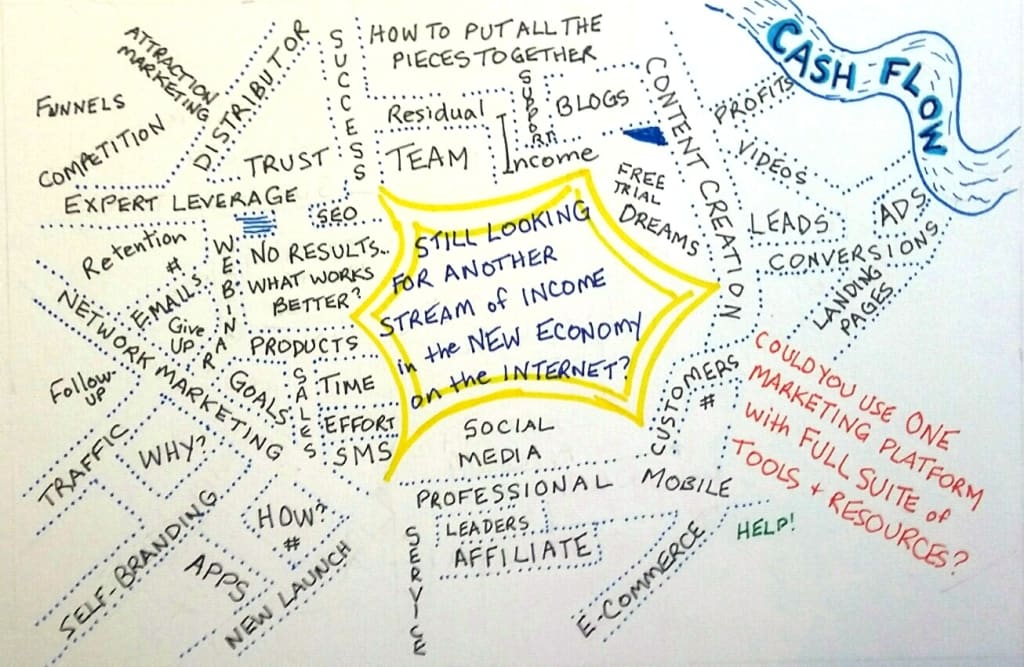 HOW TO PUT ALL THE
PIECES TOGETHER
SUCCESS
DISTRIBUTOR
ATTRACTION
MARKETING
FUNNELS
COMPETITION
TRUST
EXPERT LEVERAGE
Residual
TEAM
Income
SUPPORT
BLOGS
CONTENT CREATION
FREE
TRIAL
DREAMS
PROFITS
VIDEOS
CASH FLOW
LEADS
ADS
CONVERSIONS
LANDING
PAGES
SEO
Retention
#
EMAILS
WEBINAR
NO RESULTS...
WHAT WORKS
BETTER?
Give
UP
NETWORK MARKETING
PRODUCTS
GOALS
SALES
TIME
EFFORT
SMS
STILL LOOKING
FOR ANOTHER
STREAM of INCOME
in the NEW ECONOMY
on the INTERNET?
Follow-
UP
TRAFFIC
WHY?
HOW?
#
SELF-BRANDING
APPS
NEW LAUNCH
SOCIAL
MEDIA
PROFESSIONAL
LEADERS
AFFILIATE
SERVICE
CUSTOMERS
#
MOBILE
E-COMMERCE
COULD YOU USE ONE
MARKETING PLATFORM
with FULL SUITE of
TOOLS + RESOURCES?
HELP!